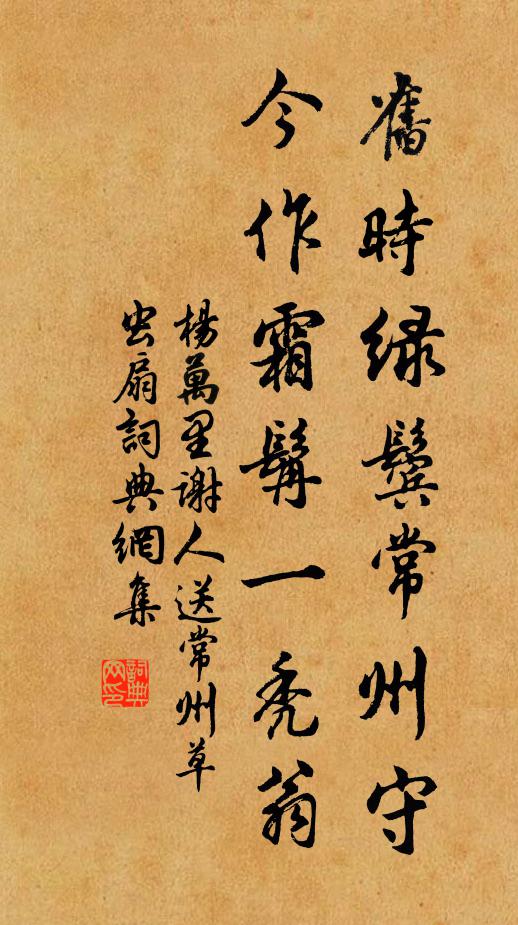 舊時綠鬢常州守
今作霜髯一禿翁
楊萬里謝人送常州草
虫扇詞典網集
詞典網印